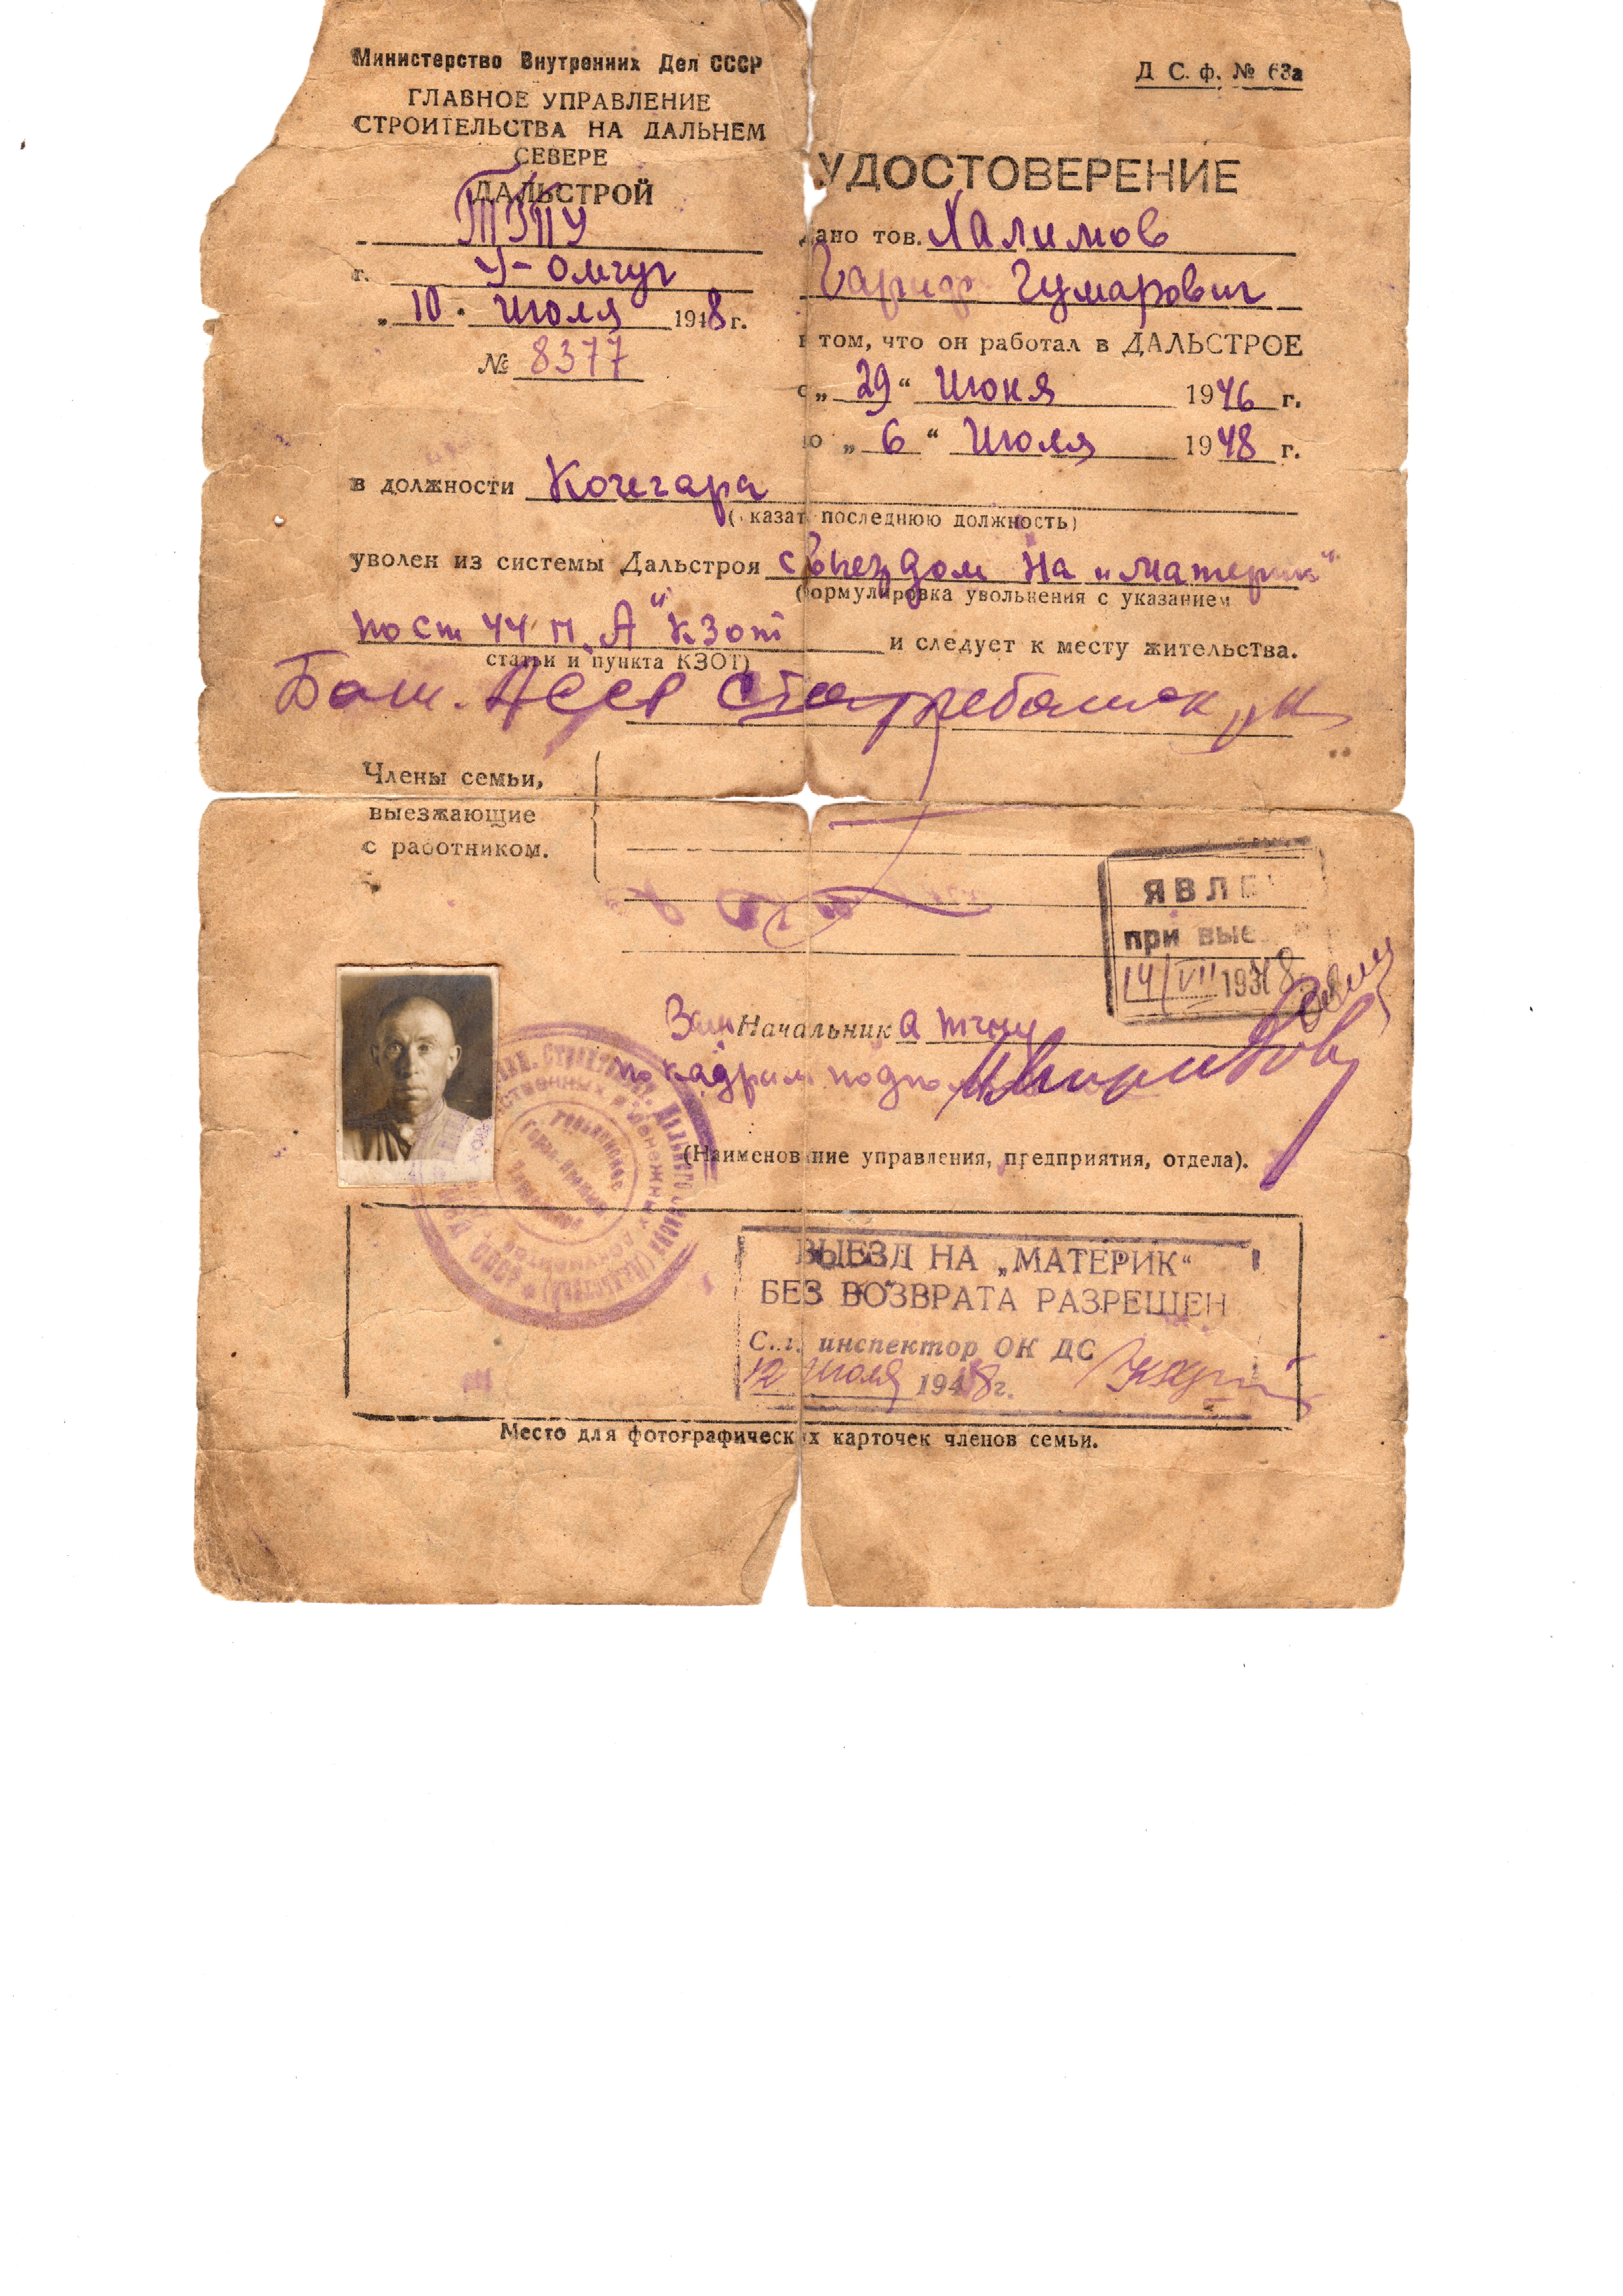 Министерство Внутренних Дел СССР
ГЛАВНОЕ УПРАВЛЕНИЕ
СТРОИТЕЛЬСТВА НА ДАЛЬНЕМ
СЕВЕРЕ
ДАЛЬСТРОЙ
г. У-Омчуг
„10" Июля 1948 г.
№ 8377
Д С. ф. № 63а
УДОСТОВЕРЕНИЕ
дано тов. Халимов
Гариф Гумарович
в том, что он работал в ДАЛЬСТРОЕ
с „29" Июня 1946 г.
по „6" Июля 1948 г.
в должности Кочегара
(указат последнюю должность)
уволен из системы Дальстроя с выездом на „материк"
(формулировка увольнения с указанием
по ст 44 п. „А" КЗОТ и следует к месту жительства.
статьи и пункта КЗОТ)
Баш. АССР
Члены семьи,
выезжающие
с работником.
ЯВЛЕ
при вые
14/VII 1948
Зам Начальника ТГПУ
по кадрам
(Наименование управления, предприятия, отдела).
ВЫЕЗД НА „МАТЕРИК"
БЕЗ ВОЗВРАТА РАЗРЕШЕН
Ст. инспектор ОК ДС
12 Июля 1948 г.
Место для фотографических карточек членов семьи.